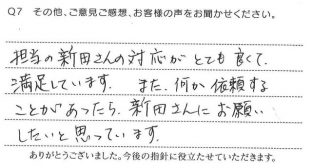 Q7 その他、ご意見ご感想、お客様の声をお聞かせください。
担当の新田さんの対応がとても良くて、
満足しています。 また、何か依頼する
ことがあったら、新田さんにお願い
したいと思っています。
ありがとうございました。今後の指針に役立たせていただきます。